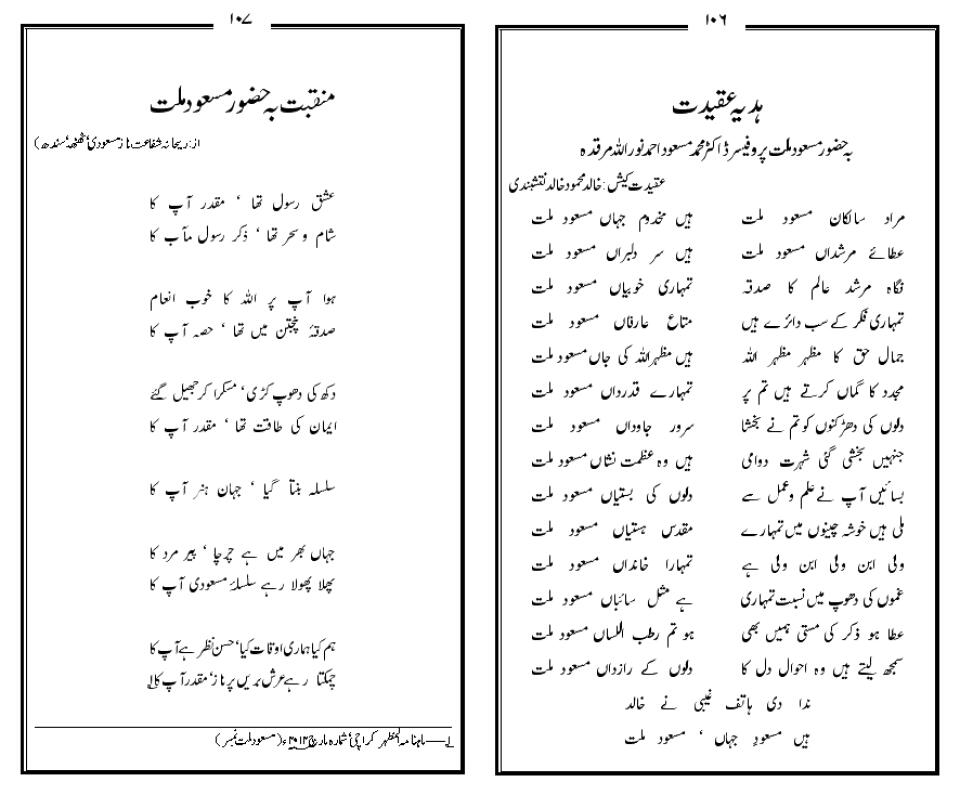 ۱۰۶
ہدیہ عقیدت
بہ حضور مسعود ملت پروفیسر ڈاکٹر محمد مسعود احمد نور اللہ مرقدہ
عقیدت کیش: خالد محمود خالد نقشبندی
مراد سالکان مسعود ملت ہیں مخدوم جہاں مسعود ملت
عطائے مرشداں مسعود ملت ہیں سر دلبراں مسعود ملت
نگاہ مرشد عالم کا صدقہ تمہاری خوبیاں مسعود ملت
تمہاری فکر کے سب دائرے ہیں متاع عارفاں مسعود ملت
جمال حق کا مظہر مظہر اللہ ہیں مظہر اللہ کی جاں مسعود ملت
مجدد کا گماں کرتے ہیں تم پر تمہارے قدرداں مسعود ملت
دلوں کی دھڑکنوں کو تم نے بخشا سرور جاوداں مسعود ملت
جنہیں بخشی گئی شہرت دوامی ہیں وہ عظمت نشاں مسعود ملت
بسائیں آپ نے علم و عمل سے دلوں کی بستیاں مسعود ملت
ملی ہیں خوشہ چینوں میں تمہارے مقدس ہستیاں مسعود ملت
ولی ابن ولی ابن ولی ہے تمہارا خانداں مسعود ملت
غموں کی دھوپ میں نسبت تمہاری ہے مثل سائباں مسعود ملت
عطا ہو ذکر کی مستی ہمیں بھی ہو تم رطب اللساں مسعود ملت
سمجھ لیتے ہیں وہ احوال دل کا دلوں کے رازداں مسعود ملت
ندا دی ہاتف غیبی نے خالد
ہیں مسعودِ جہاں ‘ مسعود ملت
۱۰۷
منقبت بہ حضور مسعود ملت
از: ریحانہ شفاعت ناز مسعودی‘ ٹھٹھہ‘ سندھ)
عشق رسول تھا ‘ مقدر آپ کا
شام و سحر تھا ‘ ذکر رسول مآب کا
ہوا آپ پر اللہ کا خوب انعام
صدقۂ پنجتن میں تھا ‘ حصہ آپ کا
دکھ کی دھوپ کڑی‘ مسکرا کر جھیل گئے
ایمان کی طاقت تھا ‘ مقدر آپ کا
سلسلہ بنتا گیا ‘ جہان ہنر آپ کا
جہاں بھر میں ہے چرچا ‘ پیر مرد کا
پھلا پھولا رہے سلسلۂ مسعودی آپ کا
ہم کیا ہماری اوقات کیا‘ حسن نظر ہے آپ کا
چمکتا رہے عرش بریں پر ناز‘ مقدر آپ کا۱
۱؎ ماہنامہ المظہر کراچی‘ شمارہ مارچ ۲۰۱۲ء (مسعود ملت نمبر)